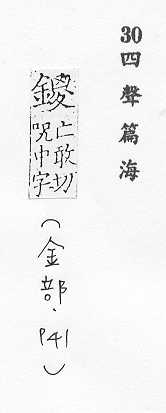 30四聲篇海
鑁
亡敢切
呪中字
(金部.P41)